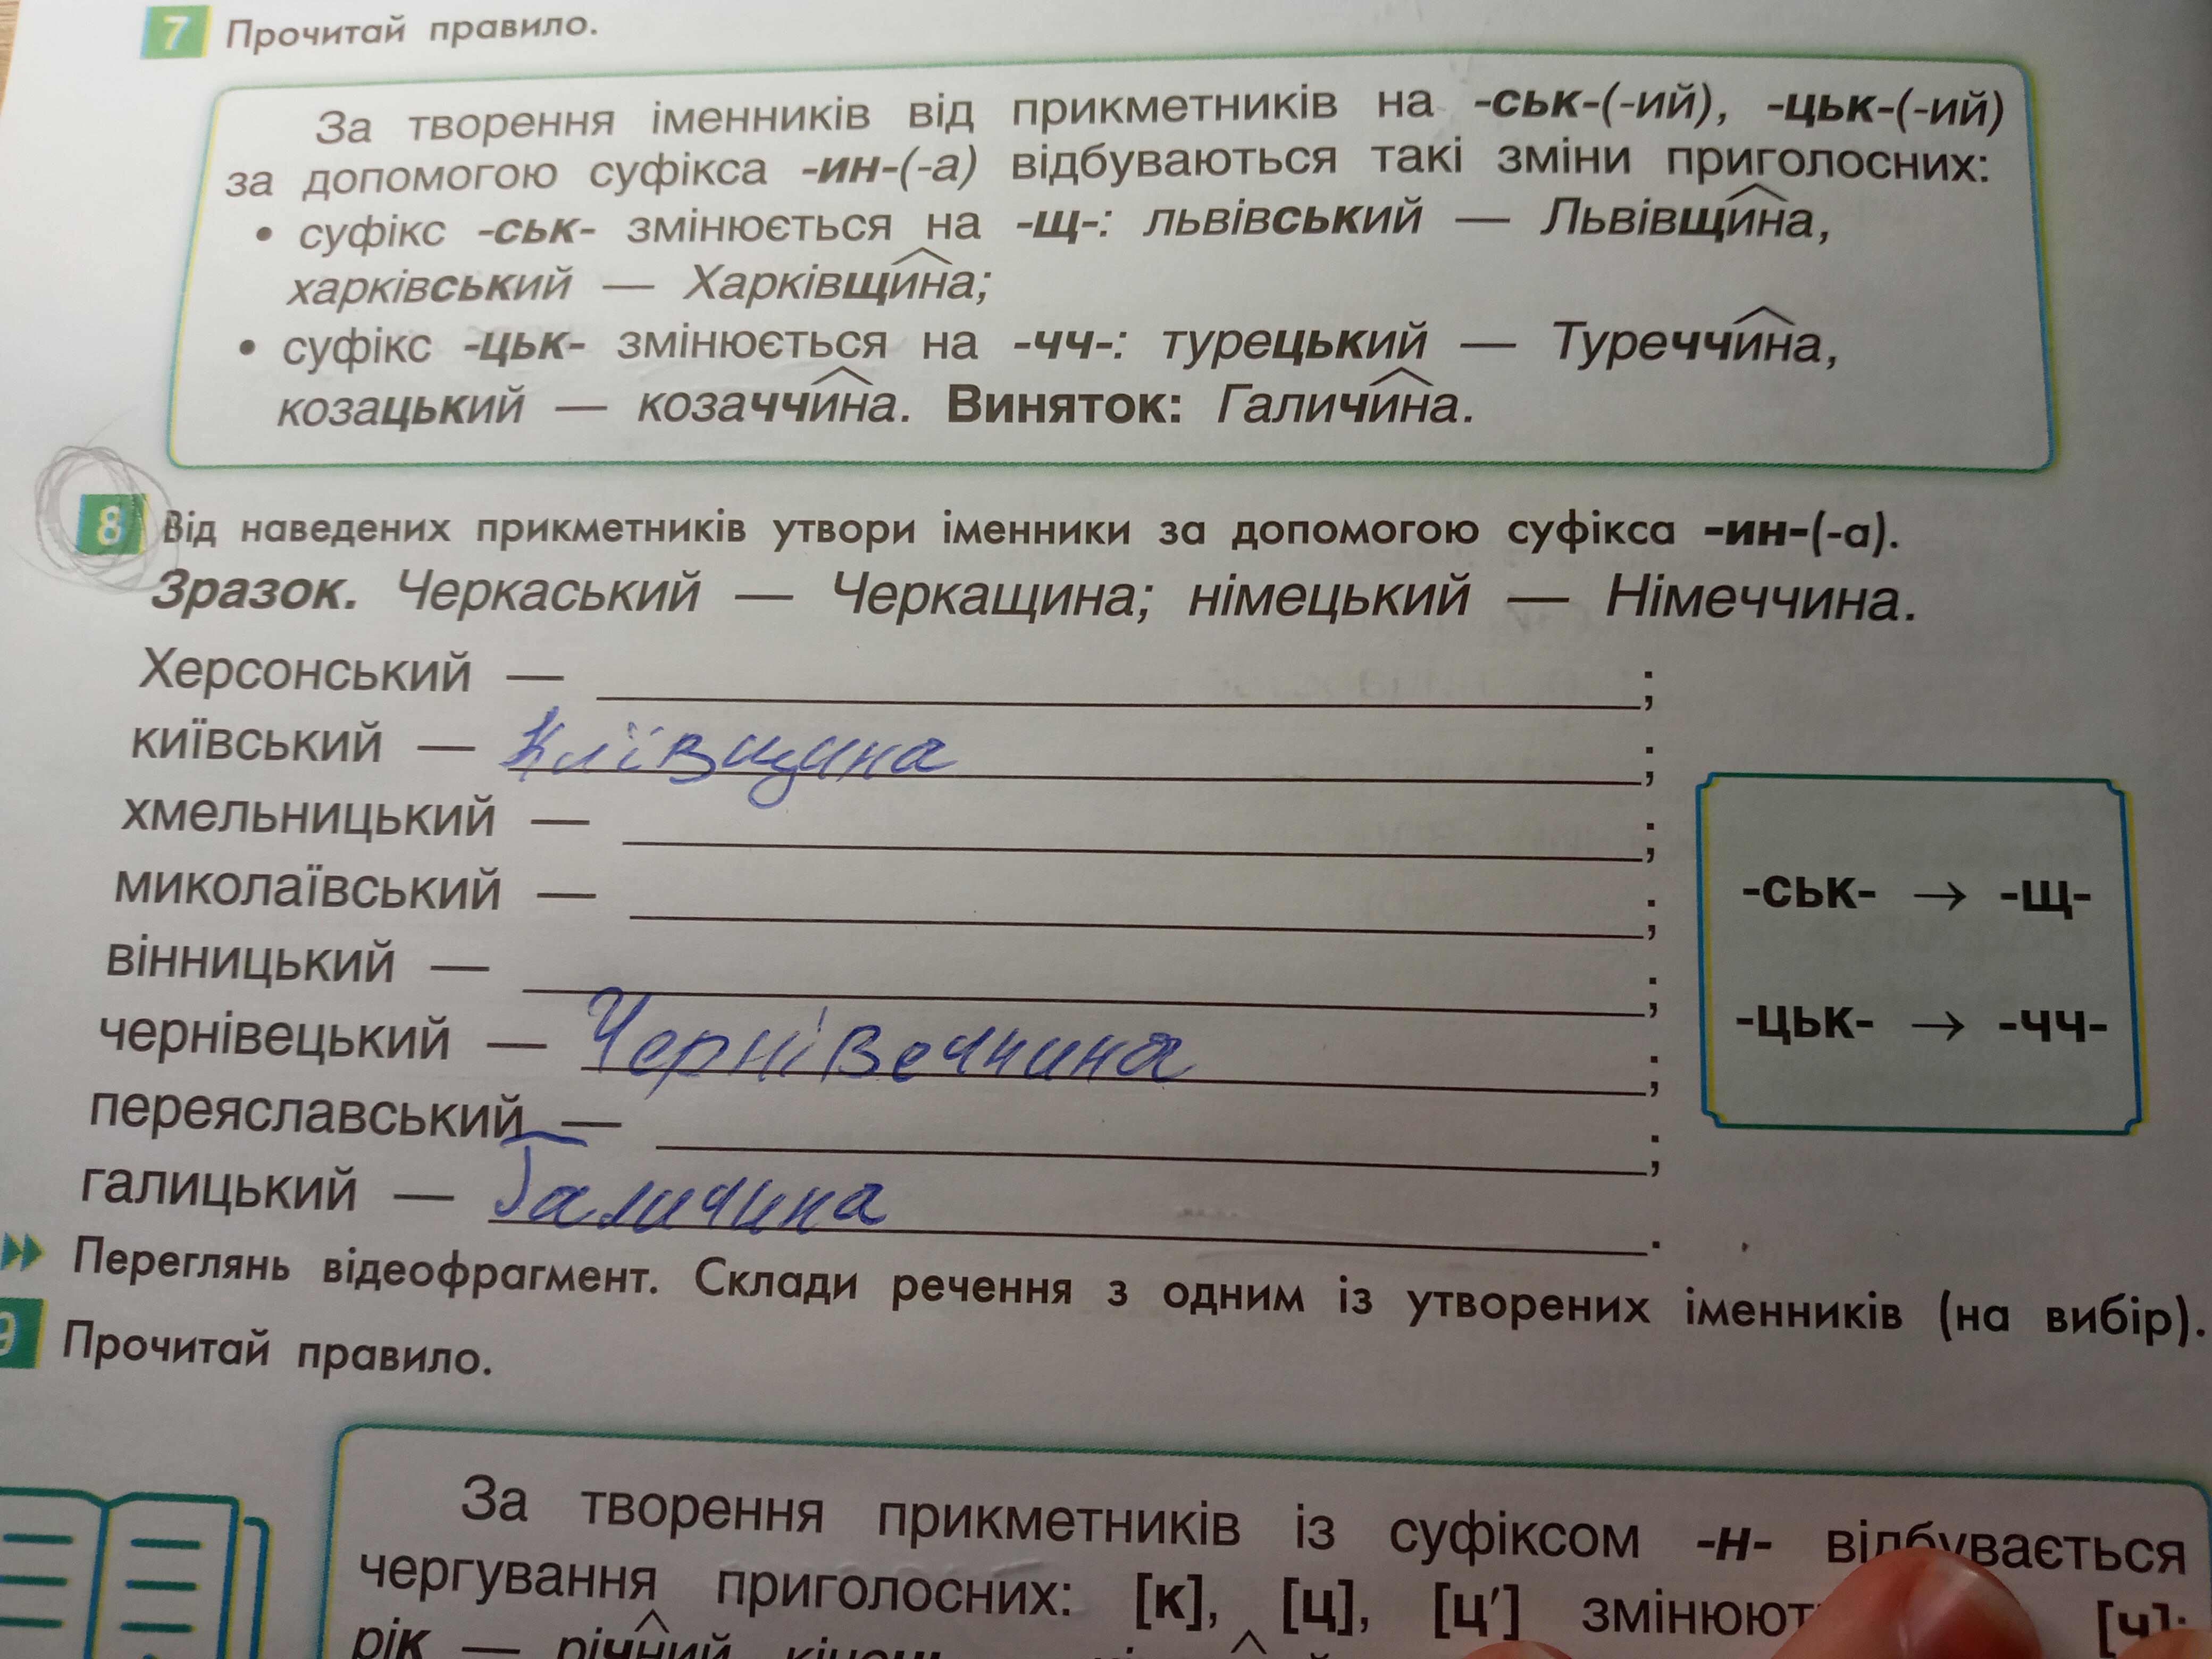 7 Прочитай правило.
За творення іменників від прикметників на -ськ-(-ий), -цьк-(-ий)
за допомогою суфікса -ин-(-а) відбуваються такі зміни приголосних:
• суфікс -ськ- змінюється на -щ-: львівський — Львівщина,
харківський — Харківщина;
• суфікс -цьк- змінюється на -чч-: турецький — Туреччина,
козацький — козаччина. Виняток: Галичина.
8 Від наведених прикметників утвори іменники за допомогою суфікса -ин-(-а).
Зразок. Черкаський — Черкащина; німецький — Німеччина.
Херсонський — ;
київський — Київщина ;
хмельницький — ;
миколаївський — ;
вінницький — ;
чернівецький — Чернівеччина ;
переяславський — ;
галицький — Галичина .
-ськ- → -щ-
-цьк- → -чч-
Переглянь відеофрагмент. Склади речення з одним із утворених іменників (на вибір).
9 Прочитай правило.
За творення прикметників із суфіксом -н- відбувається
чергування приголосних: [к], [ц], [ц′] [ч]:
рік — річний,